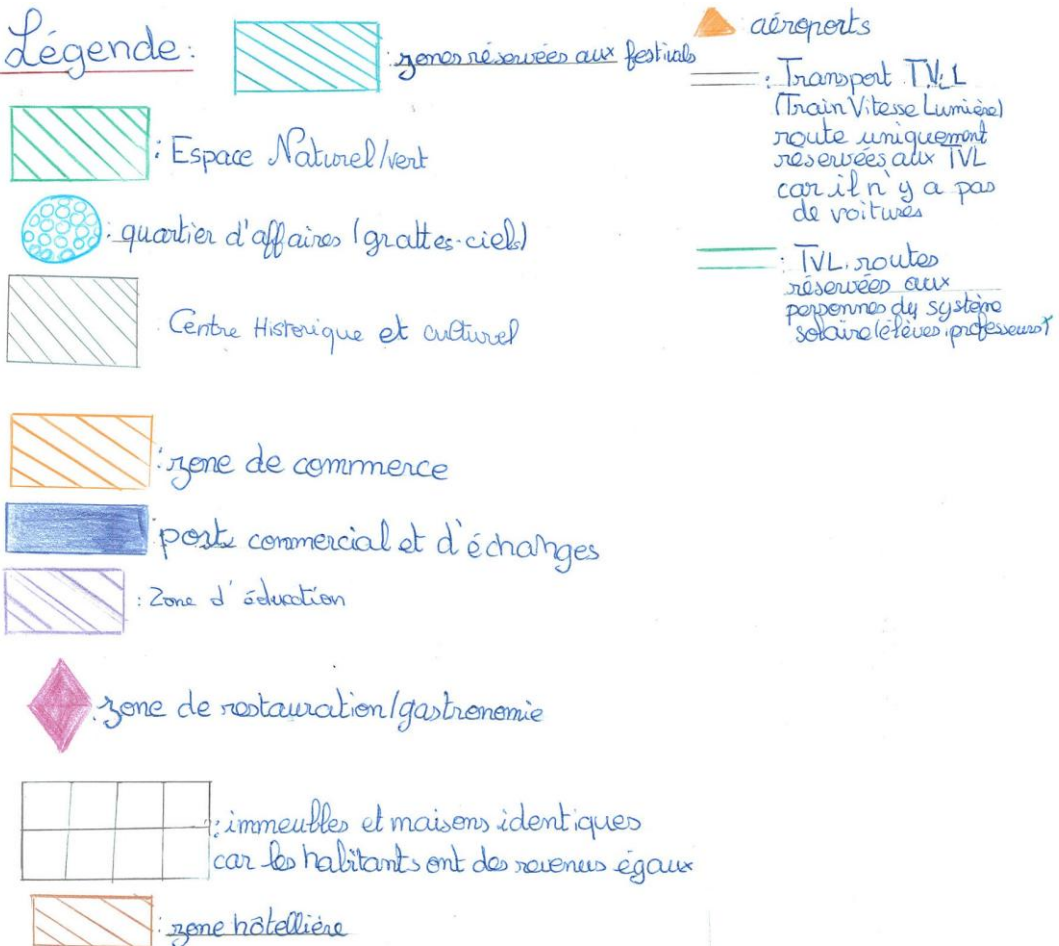 Légende:
: zones réservées aux festivals
: Espace Naturel/vert
: quartier d'affaires (grattes-ciels)
Centre Historique et culturel
: zone de commerce
: ports commercial et d'échanges
: Zone d'éducation
: zone de restauration/gastronomie
: immeubles et maisons identiques
car les habitants ont des revenus égaux
: zone hôtellière
aéroports
: Transport TVL
(Train Vitesse Lumière)
route uniquement
réservées aux TVL
car il n'y a pas
de voitures
: TVL. routes
réservées aux
personnes du système
solaire (élèves, professeurs)